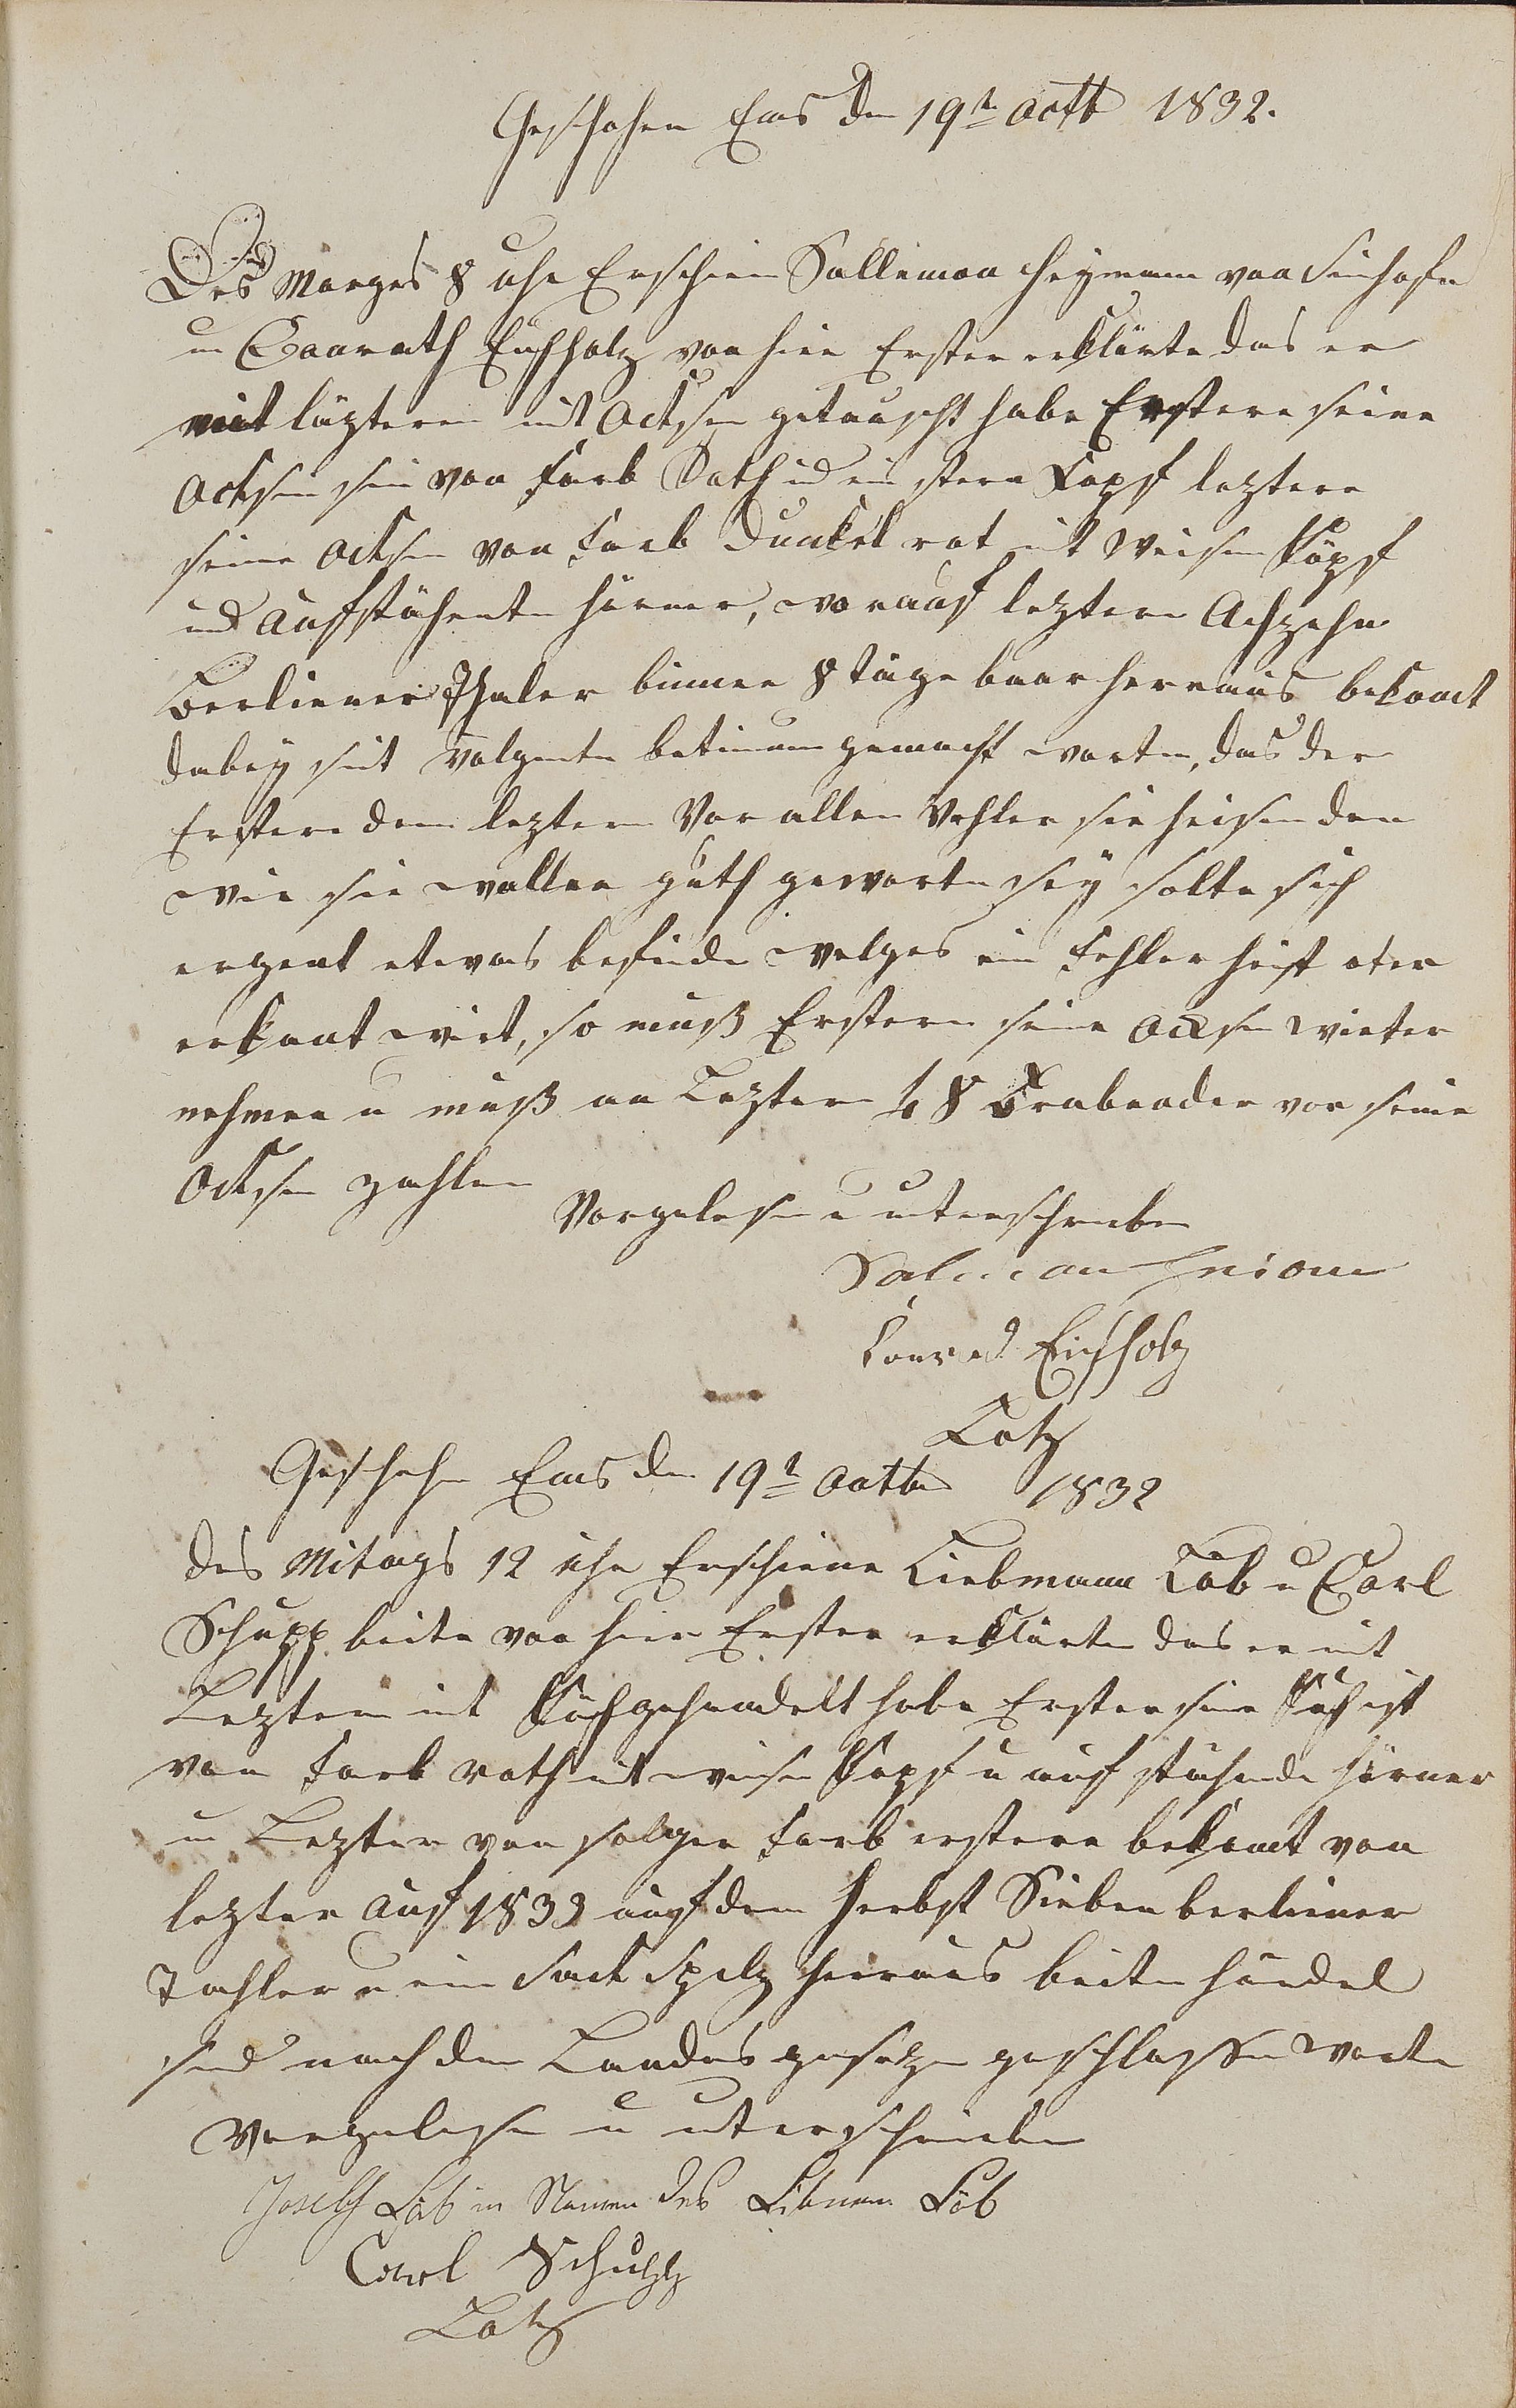 Geschehen Ems den 19t Octb 1832.
Des Morges 8 uhr Erschein Sallemon Heymann von Sinhofn
u Conrath Eichholz von hier Erster erklärte das er
mit läzteren mit Ocksen getauscht habe Erstere seine
Ocksen sein von Farb Roth u ein stern Kopf leztere
seine Ocksen von Farb dunkel rot mit weisen Köpf
und aufstähente Hörner, worauf leztere Achzehn
Berliener Thaler binnen 8 tage baar herraus bekomt
dabey sint Volgente gemacht worten, das der
Erstere dem leztern Vor allen Vehler sie heisen den
wie sie wollen guth geworten sey solte sich
ergent etwas befinde welges ein Fehler heist oter
erkant wirt, so muß Erstern seine Ocksen wieter
nehmen u muß an Leztern 48 Brabender vor seine
Ocksen zahlen
Vorgelesen u unterschrieben
Salmon
Konrad Eichholz
Lotz
Geschehen Ems den 19t Octb 1832
des Mitags 12 uhr Erschiene Liebmann Löb u Carl
Schupp beite von hier Erster erklärte das er mit
Leztern mit Küh gehandelt habe Erster seine Kuh ist
von Farb roth mit weisen Kopf u auf stähende Hörner
u Lezter von solger Farb erstere bekomt von
lezter auf 1833 auf dem Herbst Sieben berliener
Tahler u ein Sack Spelz herraus beite Händel
sind nach den Landes gesetzen geschlossen worte
Vorgelesen u unterschrieben
Joseph Löb in Namen des Libman Löb
Carl Schupp
Lotz